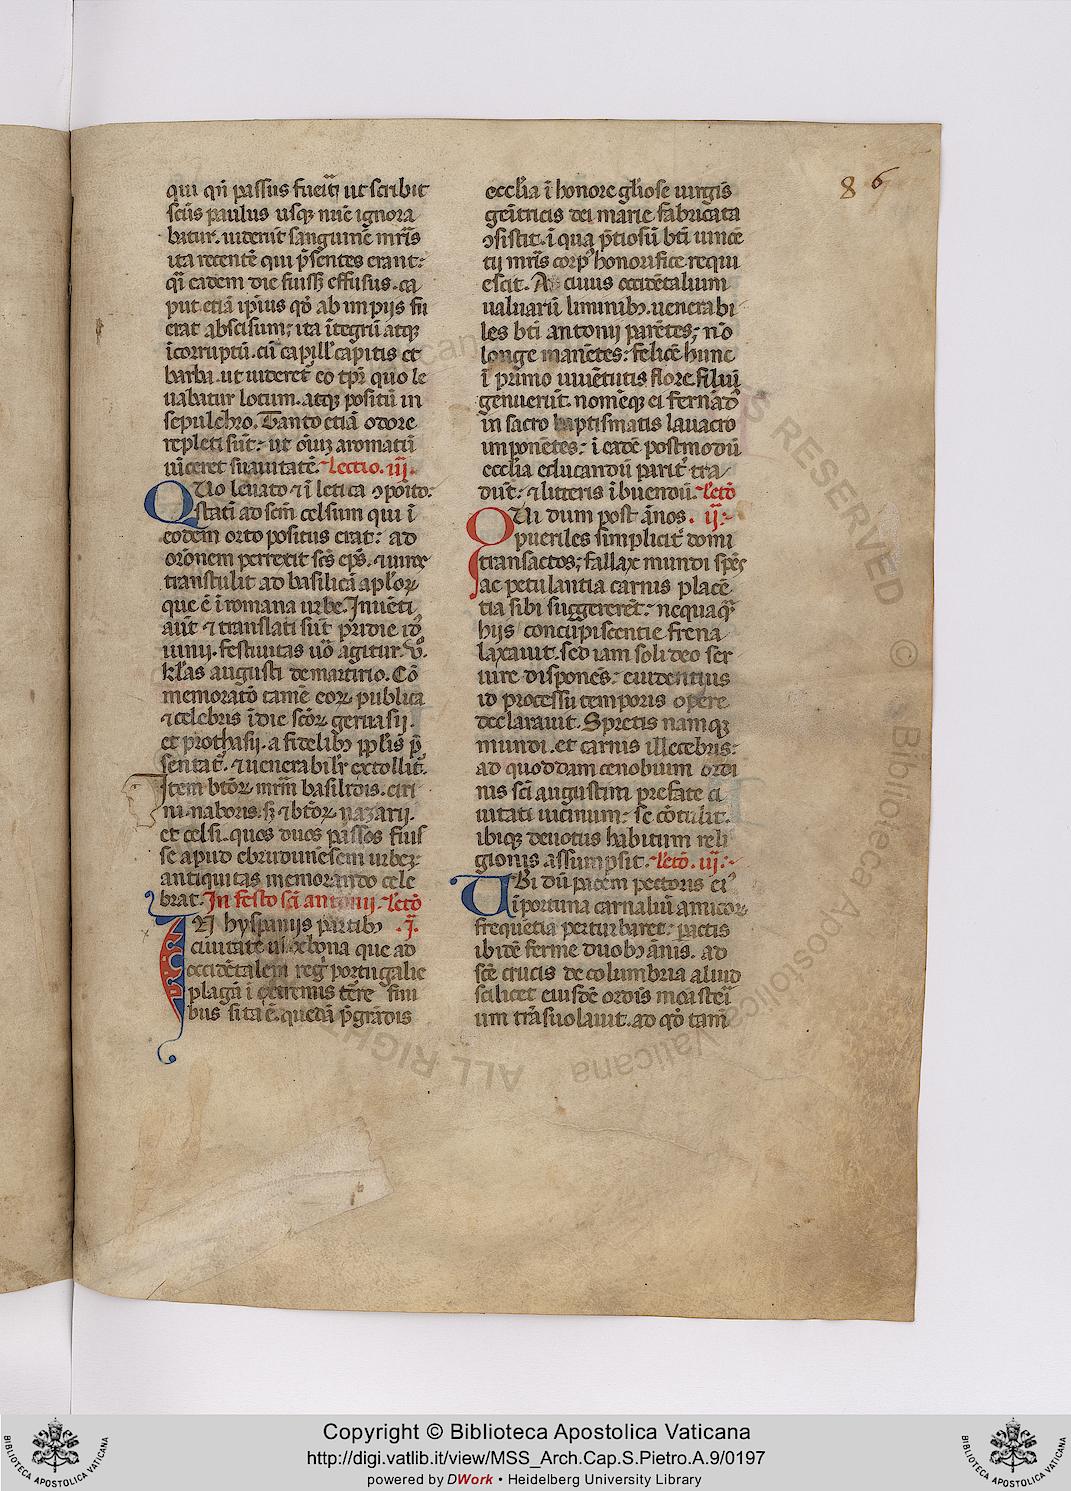 86
qui qn̄ passus fueīt ut scribit
sc̄us paulus usqȝ nūc ignora
batur. uiderūt sanguinē mr̄is
ita recentē qui p̄sentes erant:
q̄i eadem die fuiss; effusus. ca
put etiā ip̄ius qđ ab impijs fu
erat abscisum; ita ītegrū atqȝ
īcorruptū. cū capillꝭ capitis et
barba. ut uideret̉ eo tp̄r quo le
uabatur locum. atqȝ positū in
sepulchro. Tanto etiā odore
repleti sūt: ut oīuȝ aromatū
uīceret suauitatē. Lectio. iij.
QUo leuato ⁊ ī letica ꝯpoito:
statī ad sc̄m celsum qui ī
eodem orto positus erat: ad
orōnem perrexit sc̄s ep̄s. ⁊ uincͣ
transtulit ad basilicā aplōꝝ
que ē ī romana urbe. Inuēti
aūt ⁊ translati sūt pridie idꝰ
iunij. festiuitas uº agitur. v̊.
kl̄as augusti de martirio. Cō
memoratō tamē eoꝝ publica
⁊ celebris ī die scōꝝ geruasij.
et prothasij. a fidelibȝ pplīs p̄
sentat̉. ⁊ uenerabilr̄ extollit̉.
Item btōꝝ mr̄m basilidis. ciri
ni. naboris. sȝ ⁊ btōꝝ nazarij.
et celsi. quos duos passos fuis
se apud ebrudunēsem urbeȝ:
antiquitas memorando cele
brat. In festo sc̄i antonij. Lctō
IN hyspanijs partibȝ .j.
ciuitate ulixbona que ad
occidētalem regꝭ portugalie
plagā ī extremis tērē fini
bus sita ē. quedā p̄grādis
ecclīa ī honore glīose uirgīs
genītricis dei marie fabricata
ꝯsistit. ī qua p̄tiosū btī uincē
tij mr̄is corpꝰ honorifice requi
escit. Ad cuius occidētalium
ualuarū liminibȝ. uenerabi
les btī antonij parētes; nō
longe manētes: felicē hunc
ī primo iuuētutis flore filiū
genuerūt. nomēqȝ ei fernādꝰ
in sacro baptismatis lauacro
imponētes: ī eadē postmodū
ecclīa educandū parit̉ tra
dūt: ⁊ litteris ībuendū. Lctō
QUi dum post ānos . ij:
pueriles simplicit̉ domi
transactos; fallax mundi spēs
ac petulantia carnis placē
tia sibi suggererēt: nequaq̄ꝫ
hijs concupiscentie frena
laxauit. sed iam soli deo ser
uire disponēs: euidentius
id processu temporis opere
declarauit. Spretis namqȝ
mundi. et carnis illecebris:
ad quoddam cenobium ordi
nis sc̄i augustini prefate ci
uitati uicinum: se cōtulit.
ibiqȝ deuotus habitum reli
gionis assumpsit. Lctō. iij:
UBi dū pacem pectoris eiꝰ
īportuna carnaliū amicoꝝ
frequētia perturbaret: pactis
ibidē ferme duobȝ ānis. ad
sc̄e crucis de columbria aliud
scilicet eiusdē ordīs moīsteri
um trāsuolauit. ad qđ tam̄
Copyright © Biblioteca Apostolica Vaticana
http://digi.vatlib.it/view/MSS_Arch.Cap.S.Pietro.A.9/0197
powered by DWork • Heidelberg University Library
BIBLIOTECA APOSTOLICA VATICANA
BIBLIOTECA APOSTOLICA VATICANA